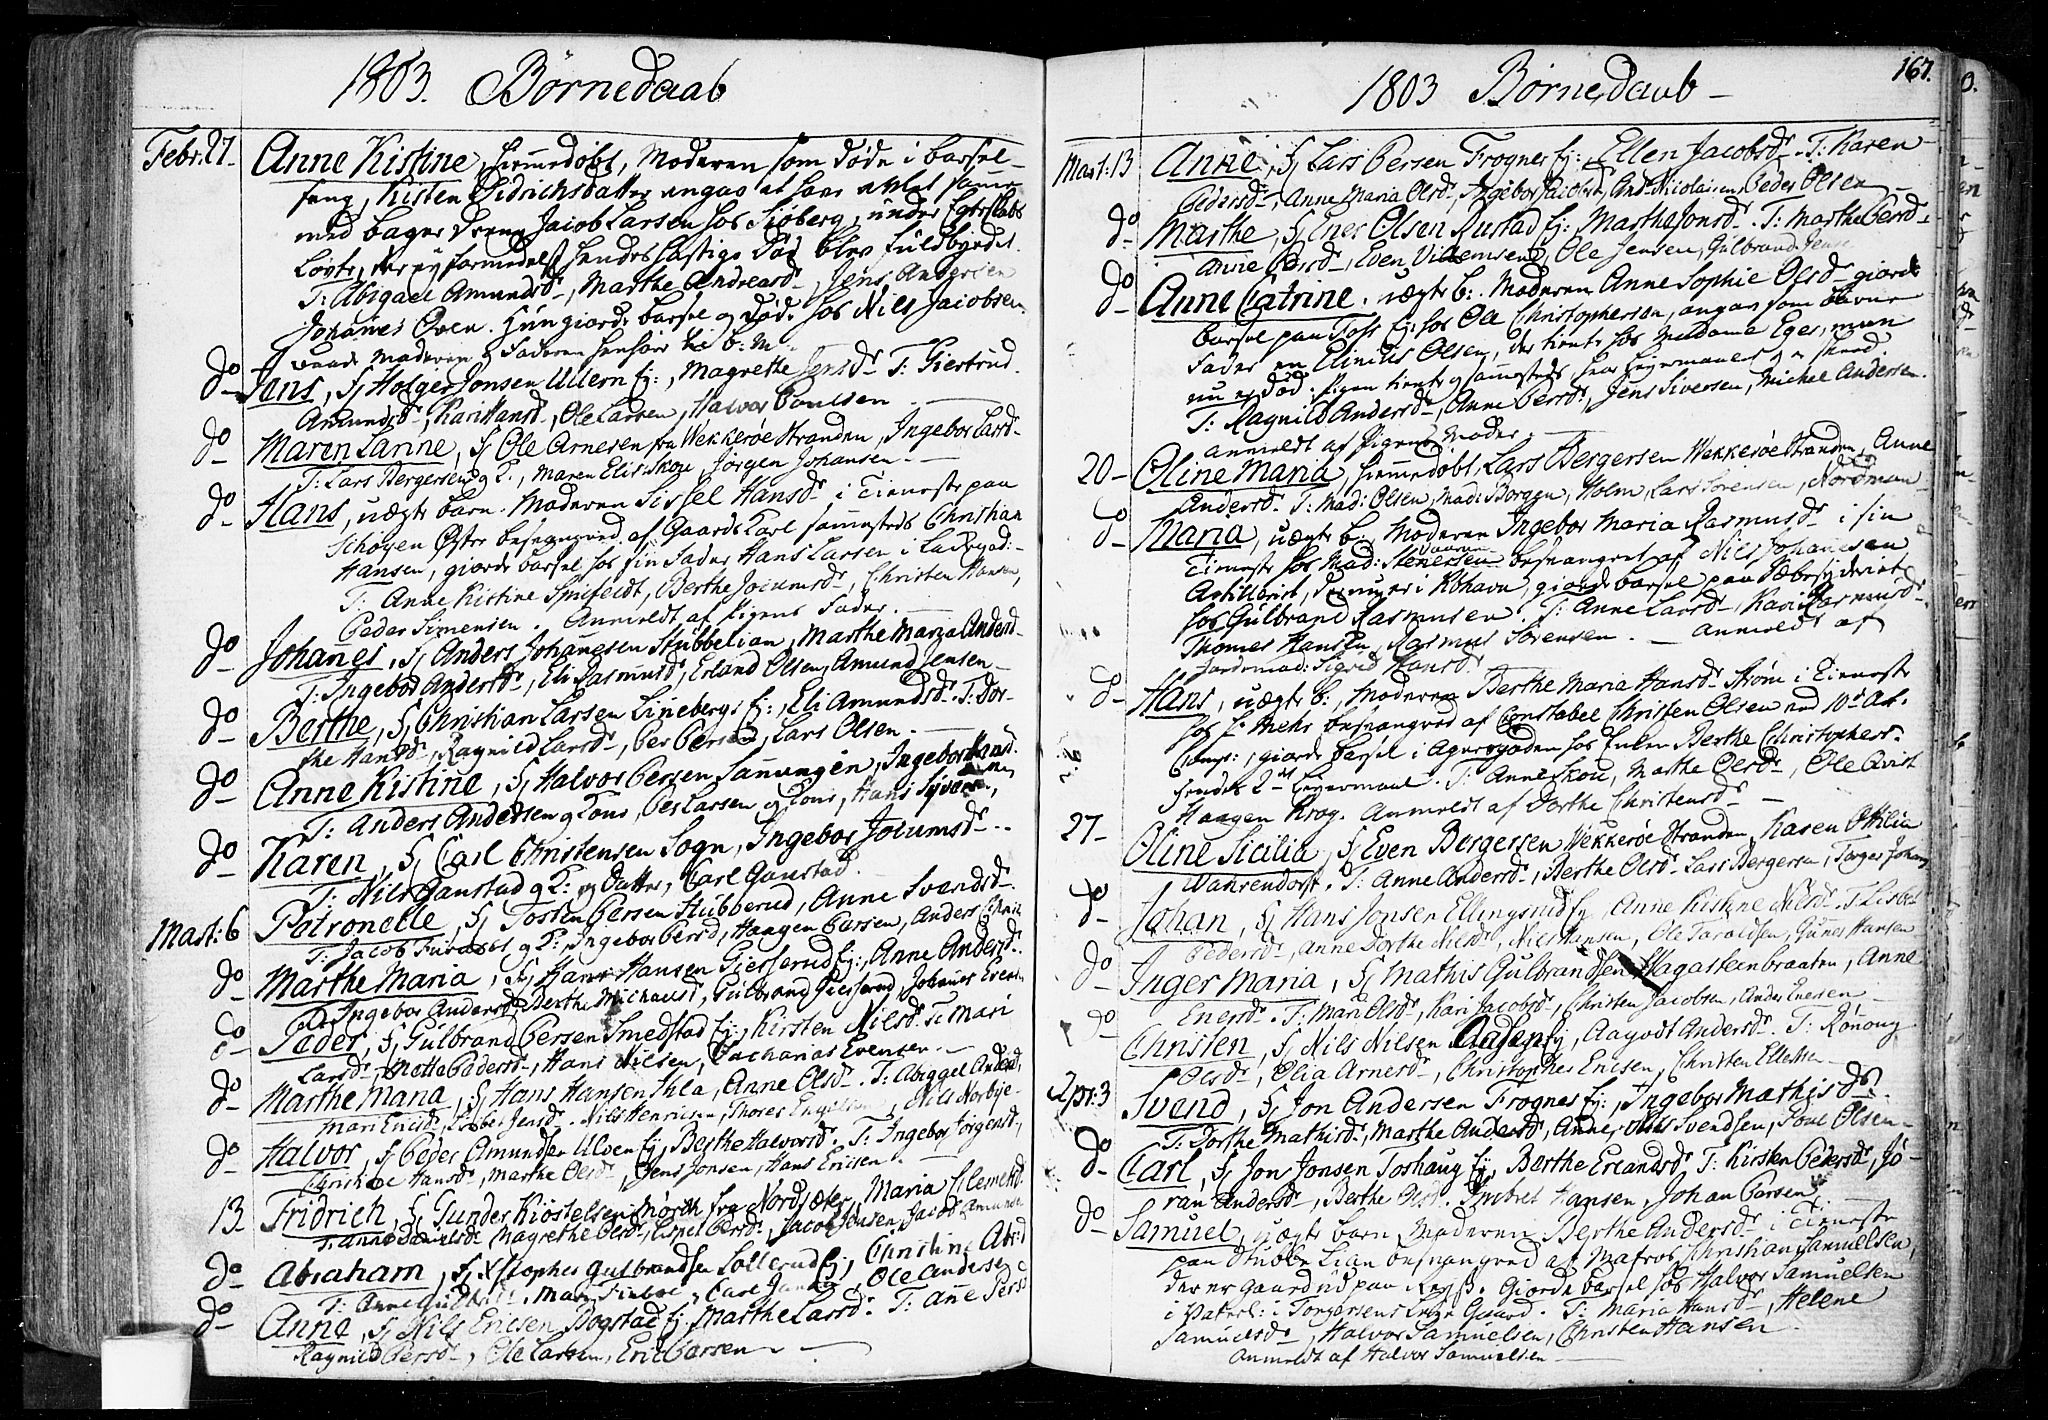 1803. Børnedaab
Febr: 27. Anne Kistine, hiemmedøbt, Moderen som døde i barsel-
seng, Kisten Didrichsdatter angav at have avlet samme
med bager Jacob Larsen hos Siøberg, under Egteskabs
Løvte, der ey formedelst hendes hastige Død blev fuldbyrdet.
T: Abigael Amundsd., Marthe Andreasd., Jens Andersen
Johanes Oven. Hun giorde barsel og døde hos Nils Jacobsen.
baade Moderen og Faderen henhører til b: M.
do Jens, F/ Holger Jonsen Ullern Ej:, Magrethe Jensd. T: Giertrud
Amundsd., Kari Hansd., Ole Larsen, Halvor Poulsen.
do Maren Lanne, F/ Ole Arnesen fra Wækkerøe Stranden, Ingebor Larsd.
T: Lars Bergersen og K., Maren Elis Skou, Jørgen Johansen.
do Hans, uægte barn. Moderen Sissel Hansd. i Tieneste paa
Schøyen Øster besvangred af Gaards Karl sammesteds Christian
Hansen, giorde barsel hos sin Fader Hans Larsen i Ladegad:
T: Anne Kistine Spifeldt, Berthe Jocumsd., Christen Hansen,
Peder Simensen. Anmeldt af Pigens Fader.
do Johanes, F/ Anders Johanesen Stubbelian, Marthe Maria Andersd.
T: Ingebor Andersd., Eli Rasmusd., Erland Olsen, Amund Jensen
do Berthe, F/ Christian Larsen Lineberg Ej:, Eli Amundsd. T: Dor-
the Hansd., Ragnild Larsd., Per Persen, Lars Olsen.
do Anne Kistine, F/ Halvor Persen Sanungen, Ingebor Hansd.
T: Anders Andersen og Kone, Per Larsen og Kone, Hans Syversen,
do Karen, F/ Carl Christensen Sogn, Ingebor Jocumsd.
T: Nils Gaustad og K: og Datter, Carl Gaustad.
Mart: 6 Petronelle, F/ Tosten Persen Stubberud, Anne Svendsd.
T: Jacob og K:, Ingebor Persd, Haagen Persen, Anders
do Marthe Maria, F/ Hans Hansen Giesserud Ej:, Anne Andersd.
T: Ingebor Andersd, Berthe Michaelsd, Gulbrand Giesserud, Johanes Evensen
do Peder, F/ Gulbrand Persen Smedstad Ej:, Kirsten Nilsd. T: Mari
Larsd., Mette Pedersd., Hans Nilsen, Zacharias Evensen.
do Marthe Maria, F/ Hans Hansen Ihla, Anne Olsd. T: Abiggel Andersd,
Mari Ericsd, Jensd. Nils Henricsen, Thores Nils Norbye
do Halvor, F/ Peder Amundsen Ulven Ej, Berthe Halvorsd. T: Ingebor Jørgensd.,
Hansd., Marthe Olsd., Jens Jonsen, Hans Ericsen.
13. Fridrich, F/ Gunder Kiostelsen fra Nordsæter, Maria Clemetsd.
T: Anne Magrethe Persd., Persd., Jacob Jensen, Jacob Amundsen
do Abraham, F/ Xstopher Gulbrandsen Sollerud Ej, Christine Abr:d
T: Anne Ole Andersen
do Anne, F/ Nils Ericsen Bogstad Ej: Marthe Larsd. T: Anne Persd
Ragnild Persd., Ole Larsen, Eric Larsen
1803 Børnedaab
167.
Mart: 13 Anne, F/ Lars Persen Frogner Ej:, Ellen Jacobsd. T: Karen
Pedersd., Anne Maria Olsd., Ingebor Jacobsd, And: Nicolaisen, Peder Olsen
do Marthe, F/ Ener Olsen Rustad Ej: Marthe Jonsd. T: Marthe Persd.
Anne Persd., Even Villemsen, Ole Jensen, Gulbrand Jensen
do Anne Catrine, uægte b:. Moderen Anne Sophie Olsd. giorde
barsel paa Ej: hos Ole Christophersen, angav som barnets
Fader en Elinius Olsen, der tiente hos Madame Eger, men
nu er død. Pigen tiente sammesteds
T: Ragnild Andersd., Anne Persd., Jens Siversen, Michel Andersen.
anmeldt af Pigens Moder.
20 Oline Maria, hiemmedøbt, Lars Bergersen Wækkerøe Stranden, Anne
Andersd. T: Mad: Olsen, Mad: Borggen, Holm, Lars Sørensen, Nordman
do Maria, uægte b:. Moderen Ingebor Maria Rasmusd. i sin
Tieneste hos Mad: Stenersen besvangret af Nils Johanesen
Artillerist, der nu er i Kbhavn, giorde barsel paa Pæbersyderiet
hos Gulbrand Rasmussen. T: Anne Larsd., Kari Rasmusd.
Thomes Hansen, Rasmus Sørensen. Anmeldt af
Jordemod: Sigrid Hansd.
do Hans, uægte b:, Moderen Berthe Maria Hansd. Strøm i Tieneste
hos besvangred af Constabel Christen Olsen ved 10d Art.
Comp:, giorde barsel i Agersgaden hos Enken Berthe Christophersd.
hendes 2det Leyermaal. T: Anne Skou, Marthe Olsd., Ole Qvist
Haagen Krog. Anmeldt af Dorthe Christensd.
27 Oline Sicilia, F/ Even Bergersen Wekkerøe Stranden, Karen Ottilia
Wahrendorf. T: Anne Andersd., Berthe Olsd. Lars Bergersen, Torger Johans
do Johan, F/ Hans Jonsen Ellingsrud Ej, Anne Kistine Nilsd. T: Lisbet
Pedersd., Anne Dorthe Nilsd., Nils Hansen, Ole Taraldsen, Gunner Hansen
do Inger Maria, F/ Mathis Gulbrandsen Hagasteenbraaten, Anne
Enersd. T: Mari Olsd., Kari Jacobsd., Christen Jacobsen, Anders Enersen
do Christen, F/ Nils Nilsen Aasen Ej, Aagodt Andersd. T: Rønnoug
Olsd., Olia Arnesd., Christopher Ericsen, Christen Ellefsen
Apr: 3 Svend, F/ Jon Andersen Frogner Ej:, Ingebor Mathisd.
T: Dorthe Mathisd., Marthe Andersd, Anne, Nils Svendsen, Poul Olsen
do Carl, F/ Jon Jonsen Toshaug Ej, Berthe Erlandsd. T: Kirsten Pedersd., Jø-
ran Andersd., Berthe Olsd. Embret Hansen, Johan Larsen.
do Samuel, uægte barn, Moderen Berthe Andersd. i Tieneste
paa Stubbe Lian besvangred af Matros Christian Samuelsen,
der er gaard ud paa Reyse. Giorde barsel hos Halvor Samuelsen
i Pæterl: i Torgersens Enke Gaard. T: Maria Hansd., Helene
Samuelsd., Halvor Samuelsen, Christen Hansen.
Anmeldt af Halvor Samuelsen